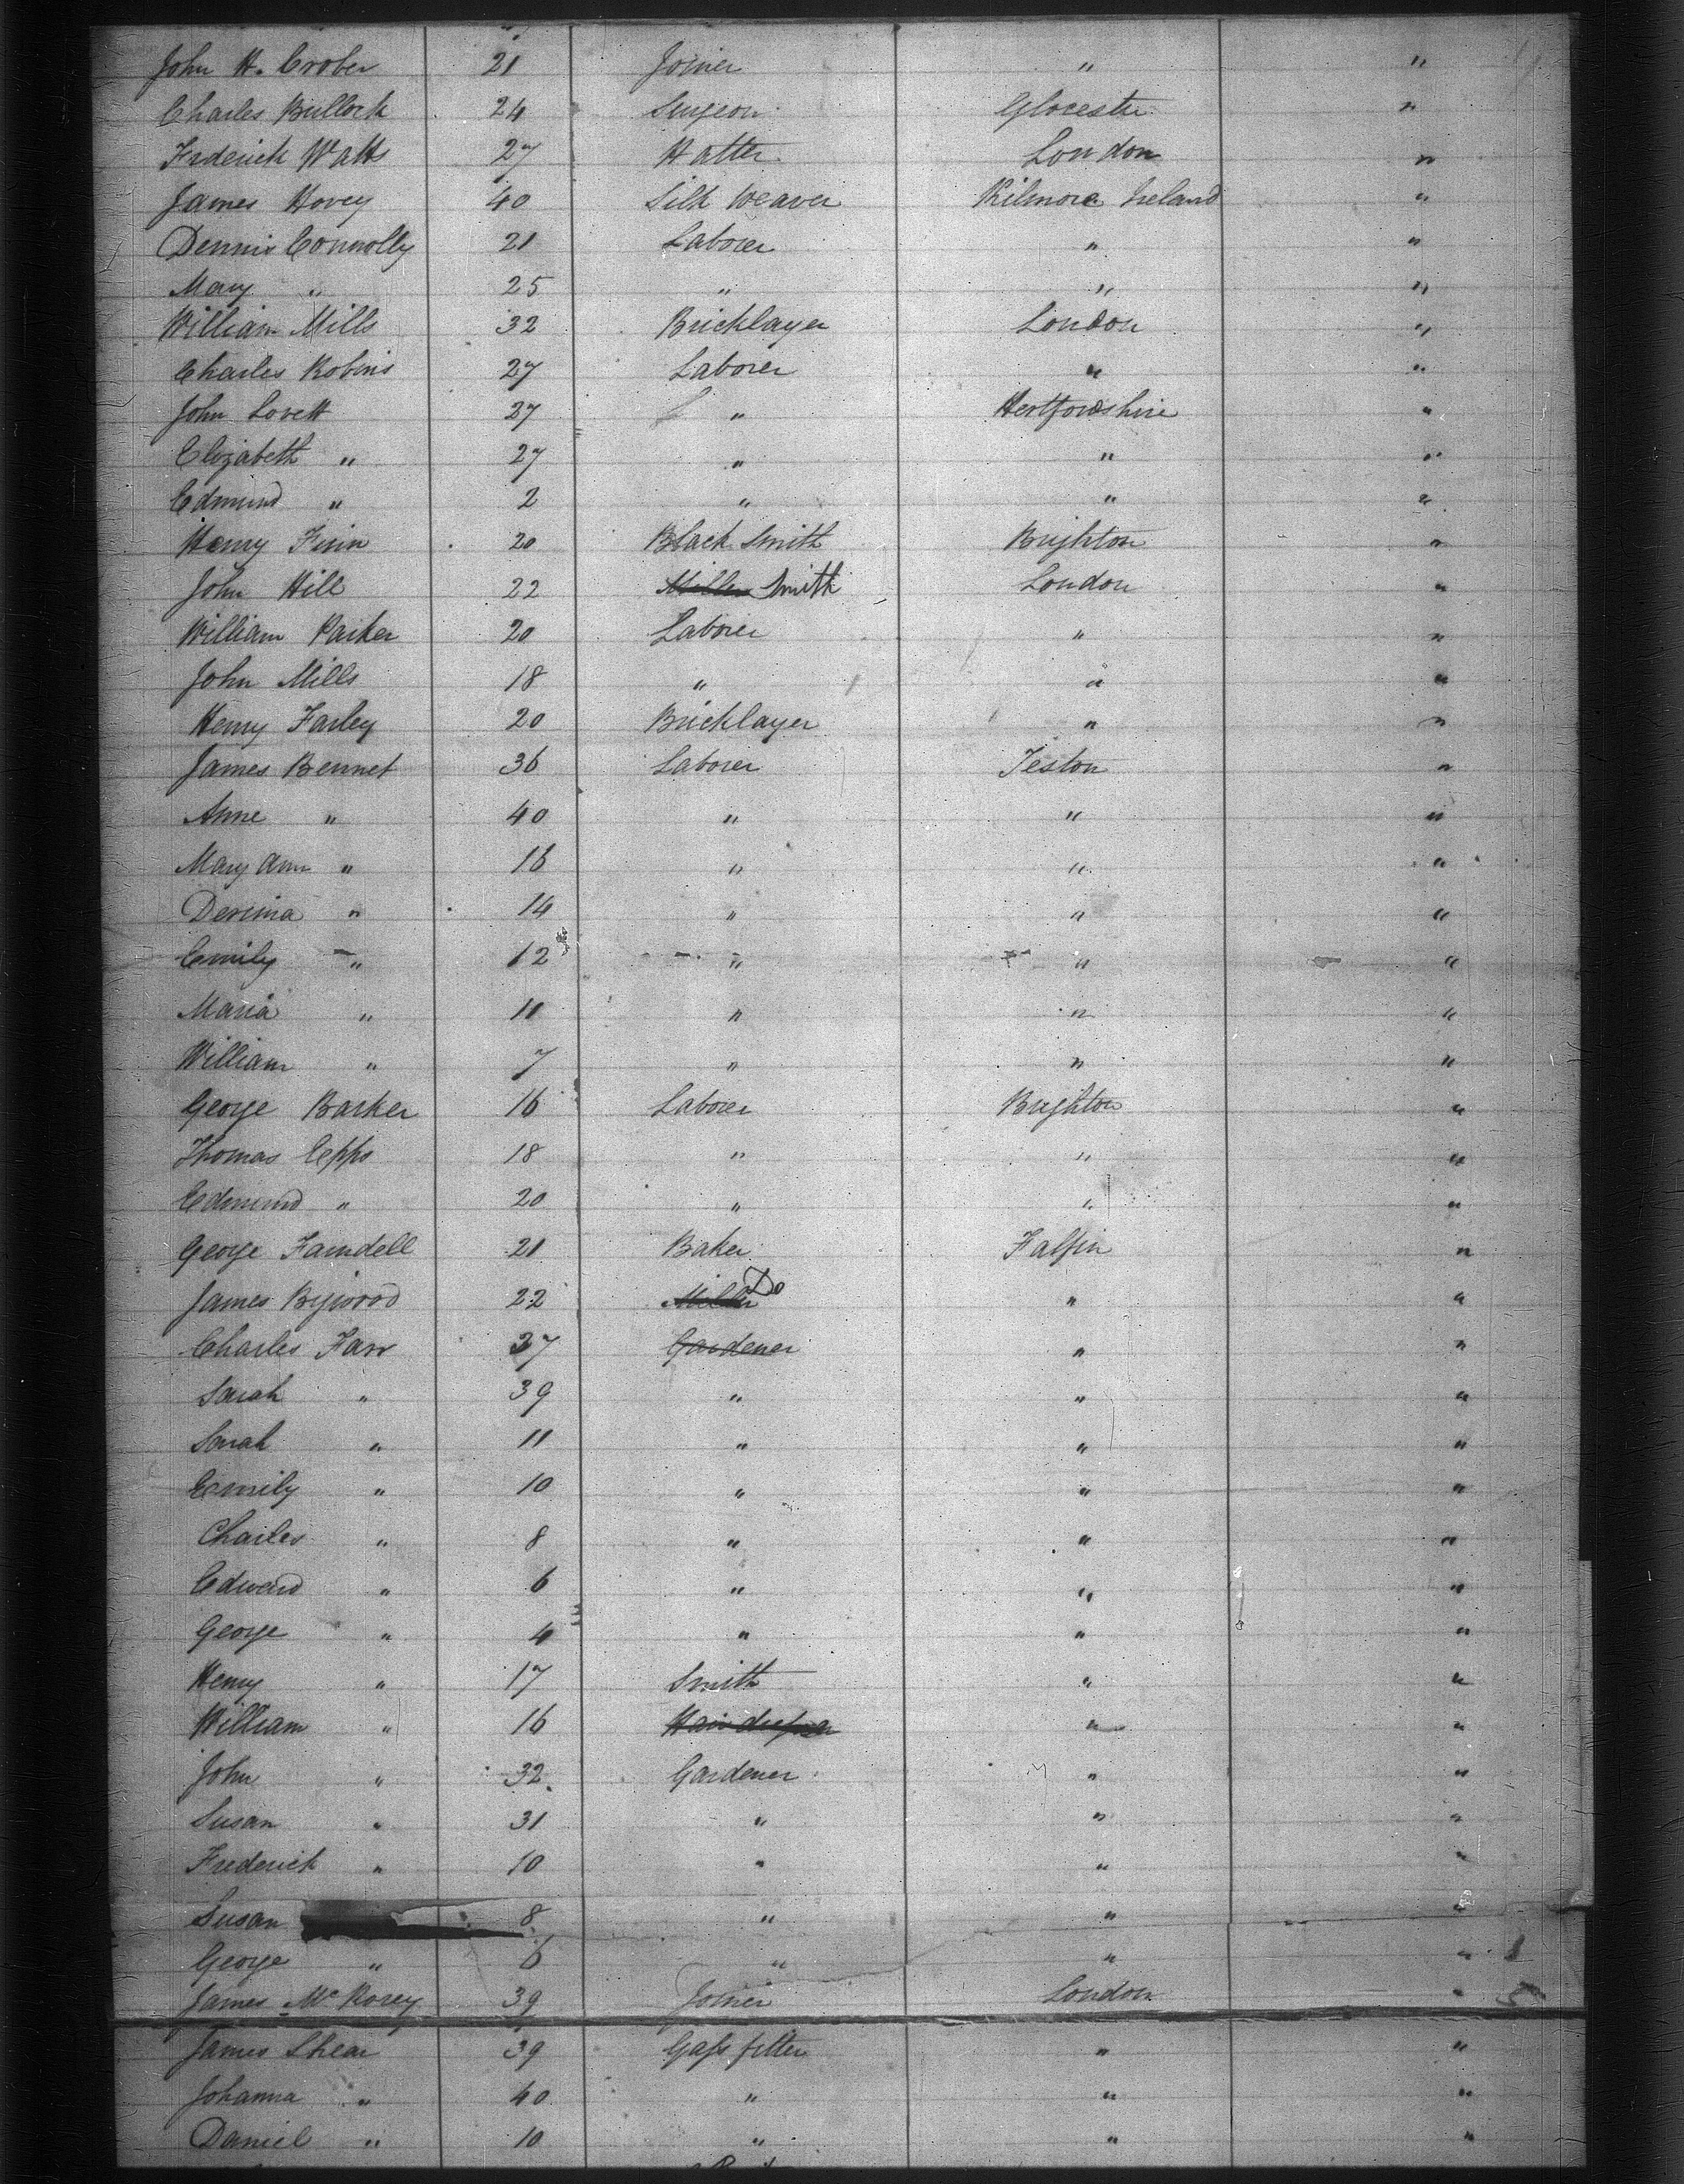 John H. Crober 21 Joiner " "
Charles Bullock 24 Surgeon Glocester "
Frderick Watts 27 Hatter London "
James Hovey 40 Silk Weaver Kilmore Ireland "
Dennis Connolly 21 Laborer " "
Mary " 25 " " "
William Mills 32 Bricklayer London "
Charles Robins 27 Laborer " "
John Lovett 27 " Hertfordshire "
Elizabeth " 27 " " "
Edmund " 2 " " "
Henry Finn 20 Black Smith Brighton "
John Hill 22 Miller Smith London "
William Parker 20 Laborer " "
John Mills 18 " " "
Henry Farley 20 Bricklayer " "
James Bennet 36 Laborer Teston "
Anne " 40 " " "
Mary Ann " 16 " " "
Dersina " 14 " " "
Emily " 12 " " "
Maria " 11 " " "
William " 7 " " "
George Barker 16 Laborer Brighton "
Thomas Epps 18 " " "
Edmund " 20 " " "
George Farndell 21 Baker Falfin "
James Bywood 22 Miller Do " "
Charles Farr 37 Gardener " "
Sarah " 39 " " "
Sarah " 11 " " "
Emily " 10 " " "
Charles " 8 " " "
Edward " 6 " " "
George " 4 " " "
Henry " 17 Smith " "
William " 16 Hair dresser " "
John " 32 Gardener " "
Susan " 31 " " "
Frederick " 10 " " "
Susan 8 " " "
George " 6 " " "
James McRorey 39 Joiner London "
James Shear 39 Gass fitter " "
Johanna " 40 " " "
Daniel " 10 " " "